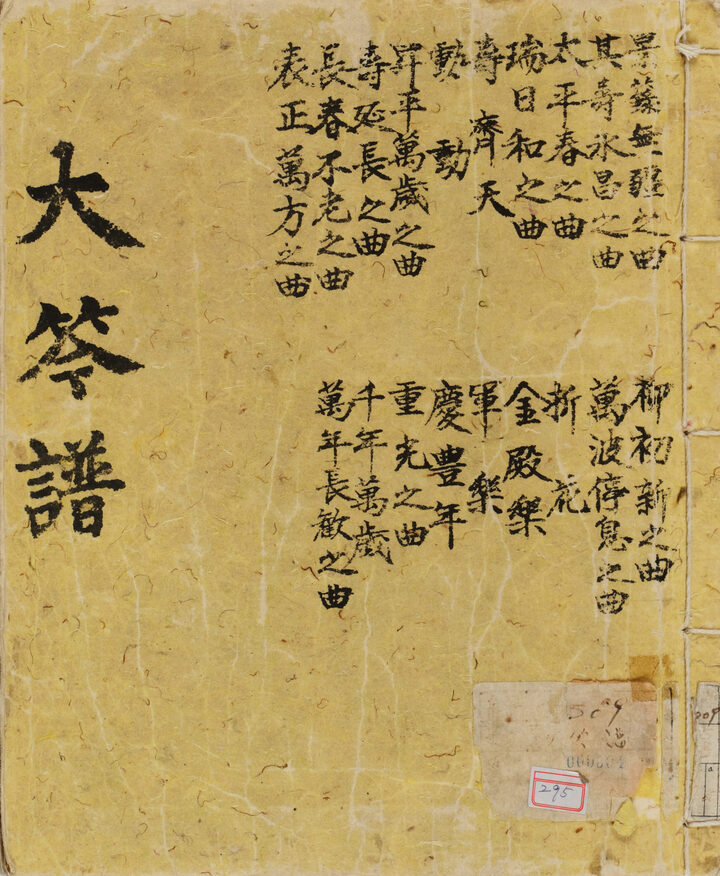 景籙無疆之曲
其壽永昌之曲
太平春之曲
瑞日和之曲
壽齊天
動動
昇平萬歲之曲
壽延長之曲
長春不老之曲
表正萬方之曲
柳初新之曲
萬波停息之曲
折花
金殿樂
軍樂
慶豊年
重光之曲
千年萬歲
萬年長歡之曲
大笒譜
295
209